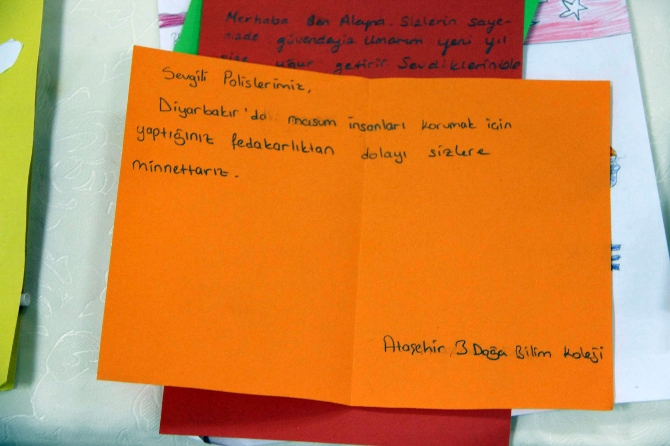 Merhaba Ben Alapra. Sizlerin saye-
nizde güvendeyiz Umarım yeni yıl
size uğur getirir Sevdiklerinizle
Sevgili Polislerimiz,
Diyarbakır'da masum insanları korumak için
yaptığınız fedakarlıktan dolayı sizlere
minnettarız.
Ataşehir 3 Doğa Bilim Koleji